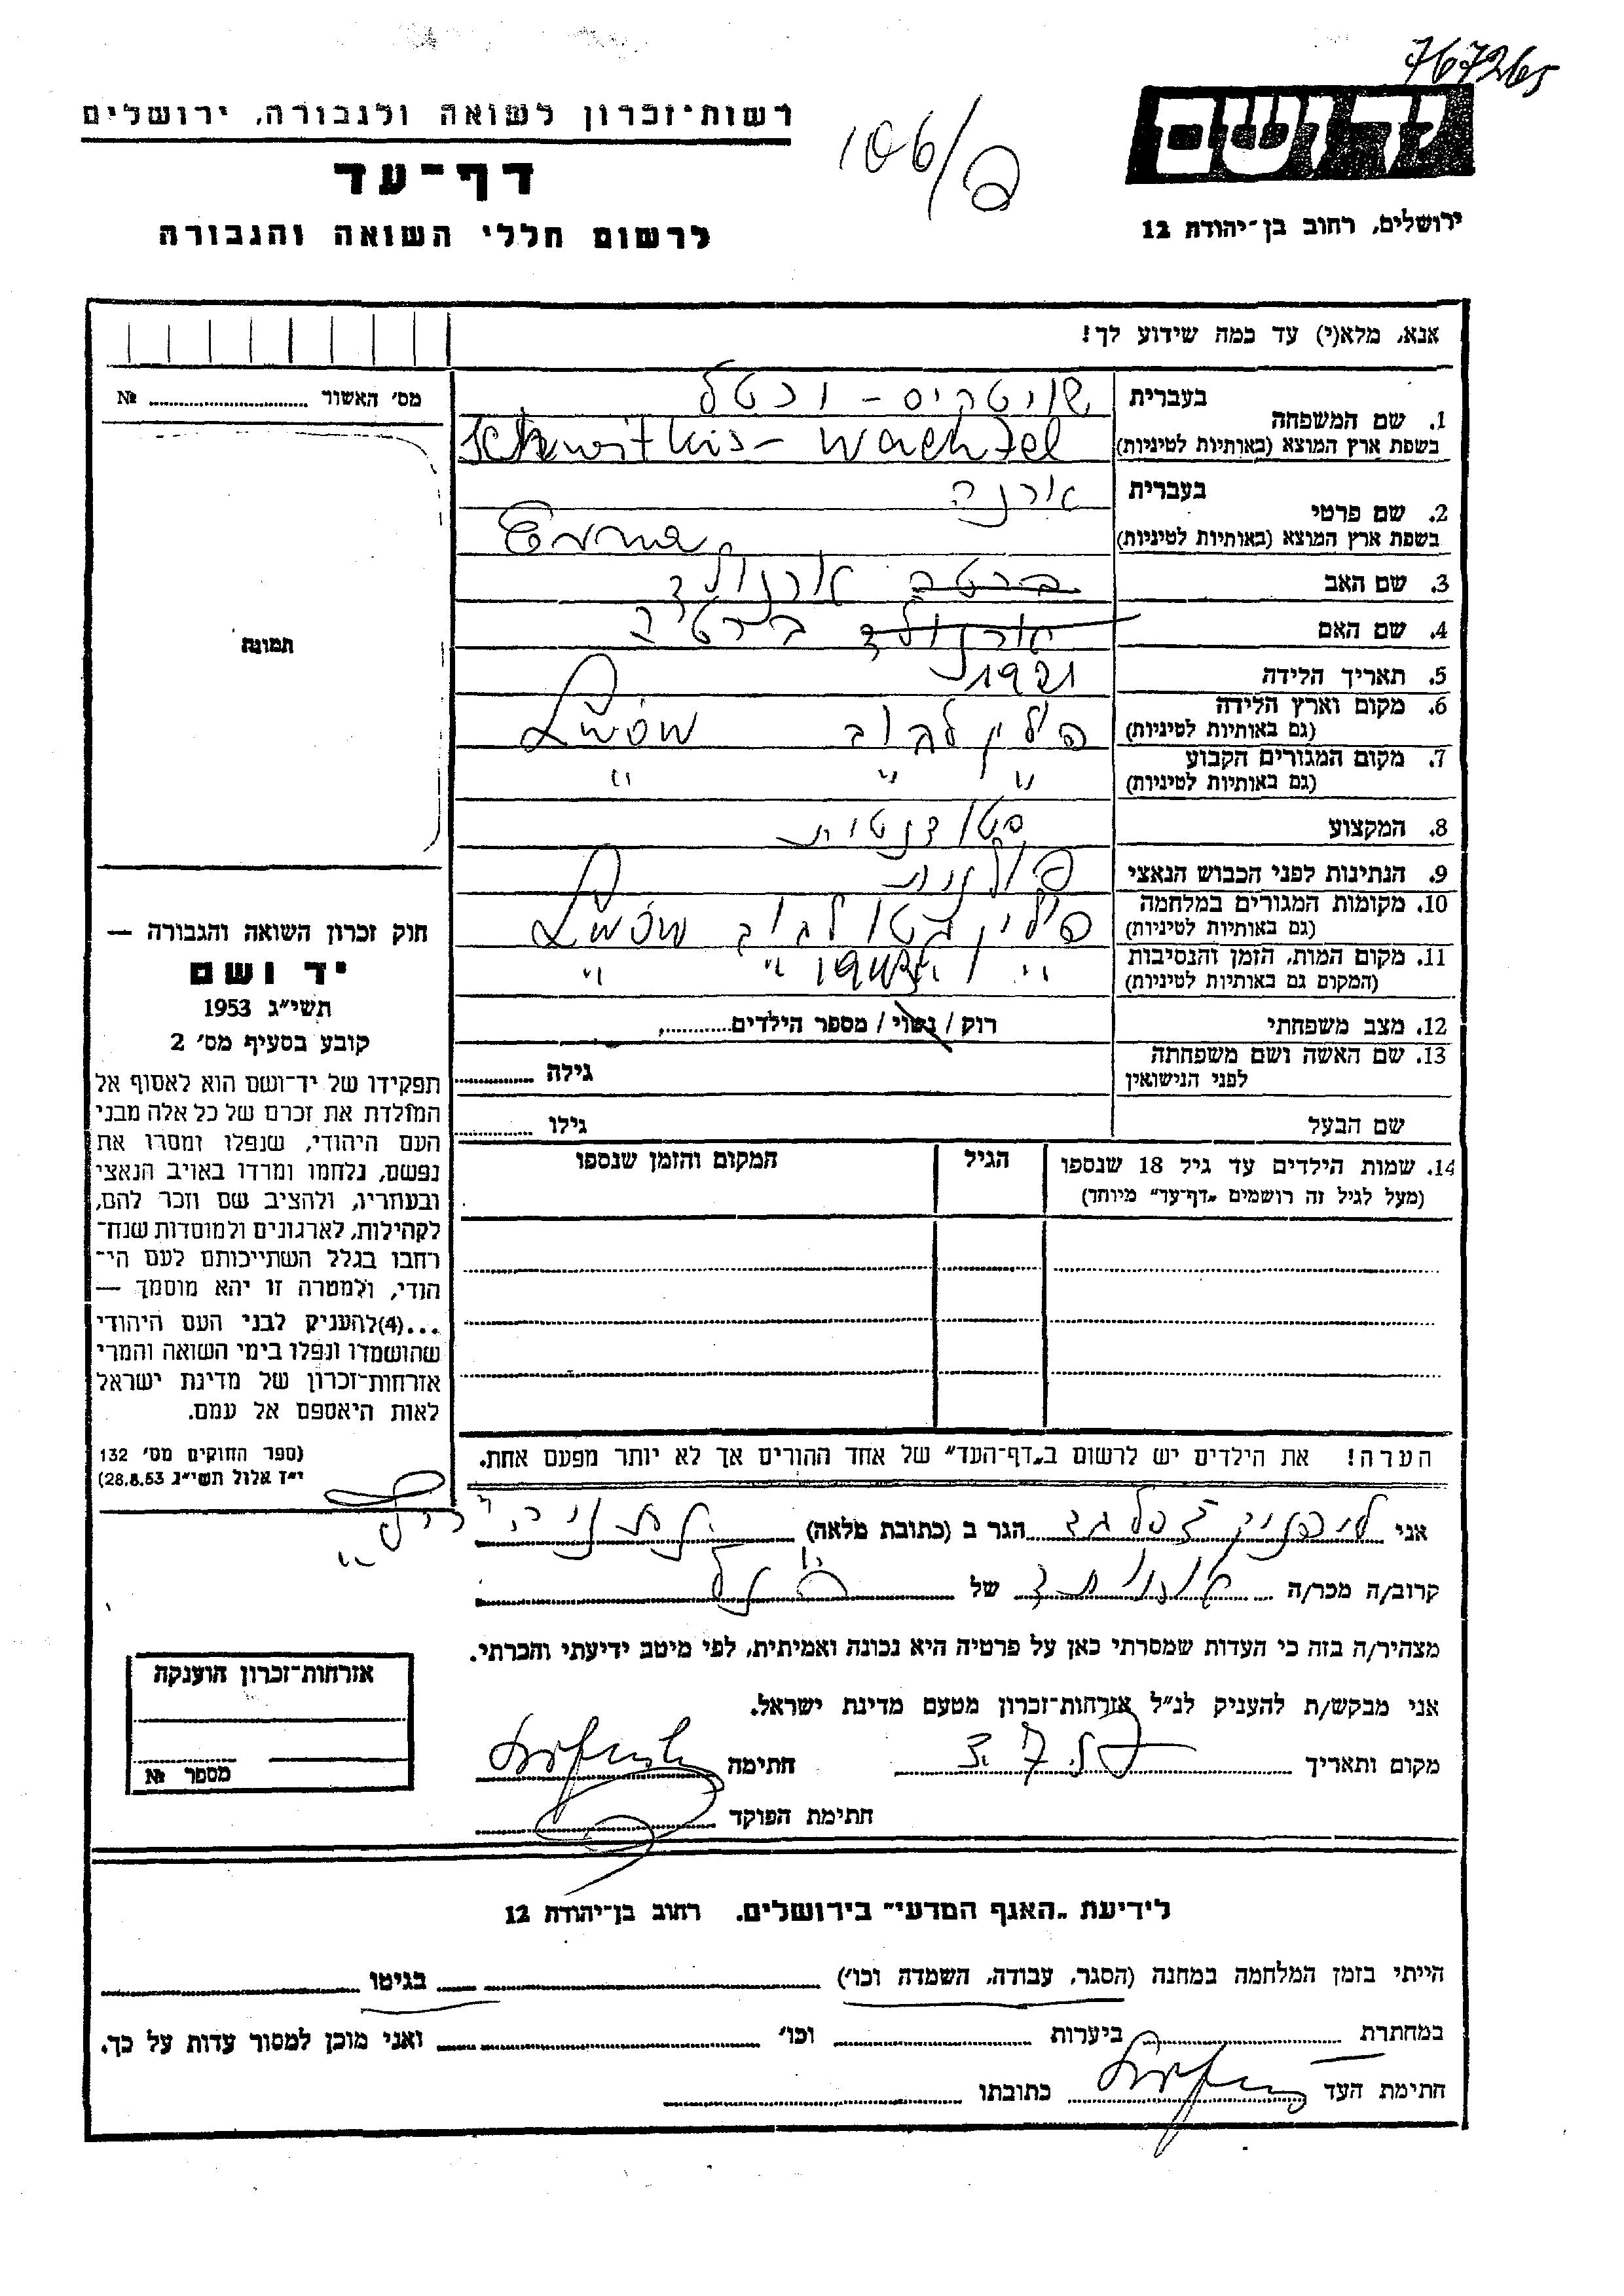 767265
רשות־זכרון לשואה ולגבורה, ירושלים
106/
יד ושם
דף־עד
ירושלים, רחוב בן־יהודה 12
לרשום חללי השואה והגבורה
אנא, מלא(י) עד כמה שידוע לך!
מס׳ האשור № 
1. שם המשפחה
בעברית שויטקיס – וכטל
בשפת ארץ המוצא (באותיות לטיניות) Schwitkis – Wachtel
2. שם פרטי
בעברית ארנה
בשפת ארץ המוצא (באותיות לטיניות) Erna
3. שם האב ברטה ארנולד
4. שם האם ארנולד ברטה
תמונה
5. תאריך הלידה 1921
6. מקום וארץ הלידה פולין לבוב Lwów
(גם באותיות לטיניות)
7. מקום המגורים הקבוע " " "
(גם באותיות לטיניות)
8. המקצוע סטודנטית
9. הנתינות לפני הכבוש הנאצי פולנית
10. מקומות המגורים במלחמה פולין גטו לבוב Lwów
(גם באותיות לטיניות)
11. מקום המות, הזמן והנסיבות " " "
(המקום גם באותיות לטיניות)
12. מצב משפחתי רווק / נשוי / מספר הילדים
13. שם האשה ושם משפחתה
לפני הנישואין
גילה
שם הבעל גילו
14. שמות הילדים עד גיל 18 שנספו
(מעל לגיל זה רושמים „דף־עד” מיוחד)
הגיל
המקום והזמן שנספו
חוק זכרון השואה והגבורה —
יד ושם
תשי״ג 1953
קובע בסעיף מס׳ 2
תפקידו של יד־ושם הוא לאסוף אל
המולדת את זכרם של כל אלה מבני
העם היהודי, שנפלו ומסרו את
נפשם, נלחמו ומרדו באויב הנאצי
ובעוזריו, ולהציב שם וזכר להם,
לקהילות, לארגונים ולמוסדות שנח־
רחבו בגלל השתייכותם לעם הי־
הודי, ולמטרה זו יהא מוסמך —
...(4) להעניק לבני העם היהודי
שהושמדו ונפלו בימי השואה והמרי
אזרחות־זכרון של מדינת ישראל
לאות היאספם אל עמם.
(ספר החוקים מס׳ 132
י״ז אלול תשי״ג 28.8.53)
הערה! את הילדים יש לרשום ב„דף־העד” של אחד ההורים אך לא יותר מפעם אחת.
אני הגר ב (כתובת מלאה) נתניה
קרוב/ה מכר/ה של הנ"ל
מצהיר/ה בזה כי העדות שמסרתי כאן על פרטיה היא נכונה ואמיתית, לפי מיטב ידיעתי והכרתי.
אני מבקש/ת להעניק לנ״ל אזרחות־זכרון מטעם מדינת ישראל.
מקום ותאריך חתימה
חתימת הפוקד
אזרחות־זכרון הוענקה
מספר №
לידיעת „האגף המדעי” בירושלים, רחוב בן־יהודה 12
הייתי בזמן המלחמה במחנה (הסגר, עבודה, השמדה וכו׳) בגיטו
במחתרת ביערות וכו׳ ואני מוכן למסור עדות על כך.
חתימת העד כתובתו